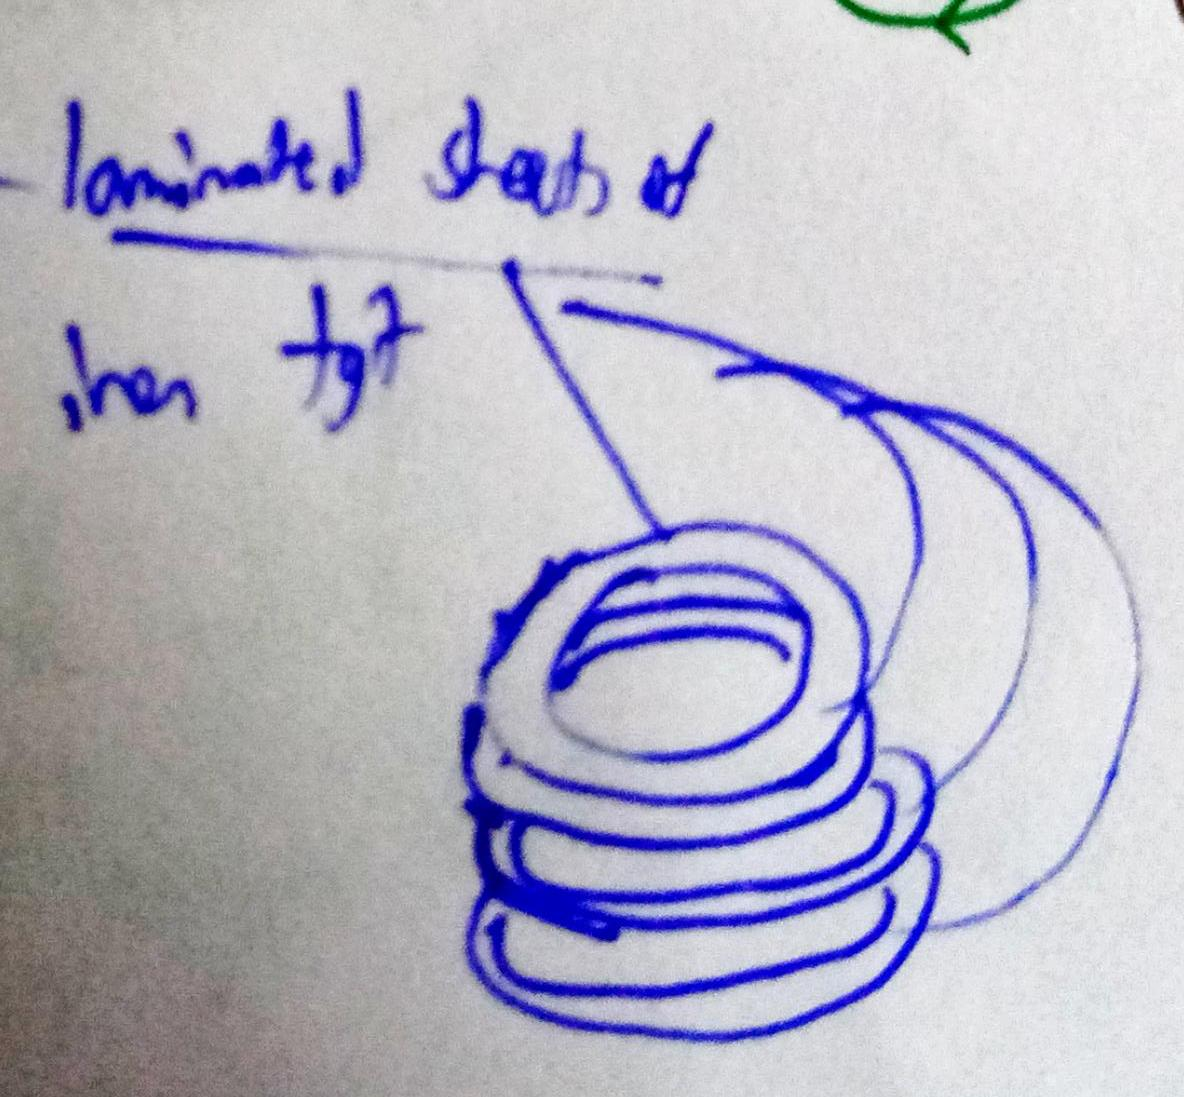 laminated sheets of
iron tgt